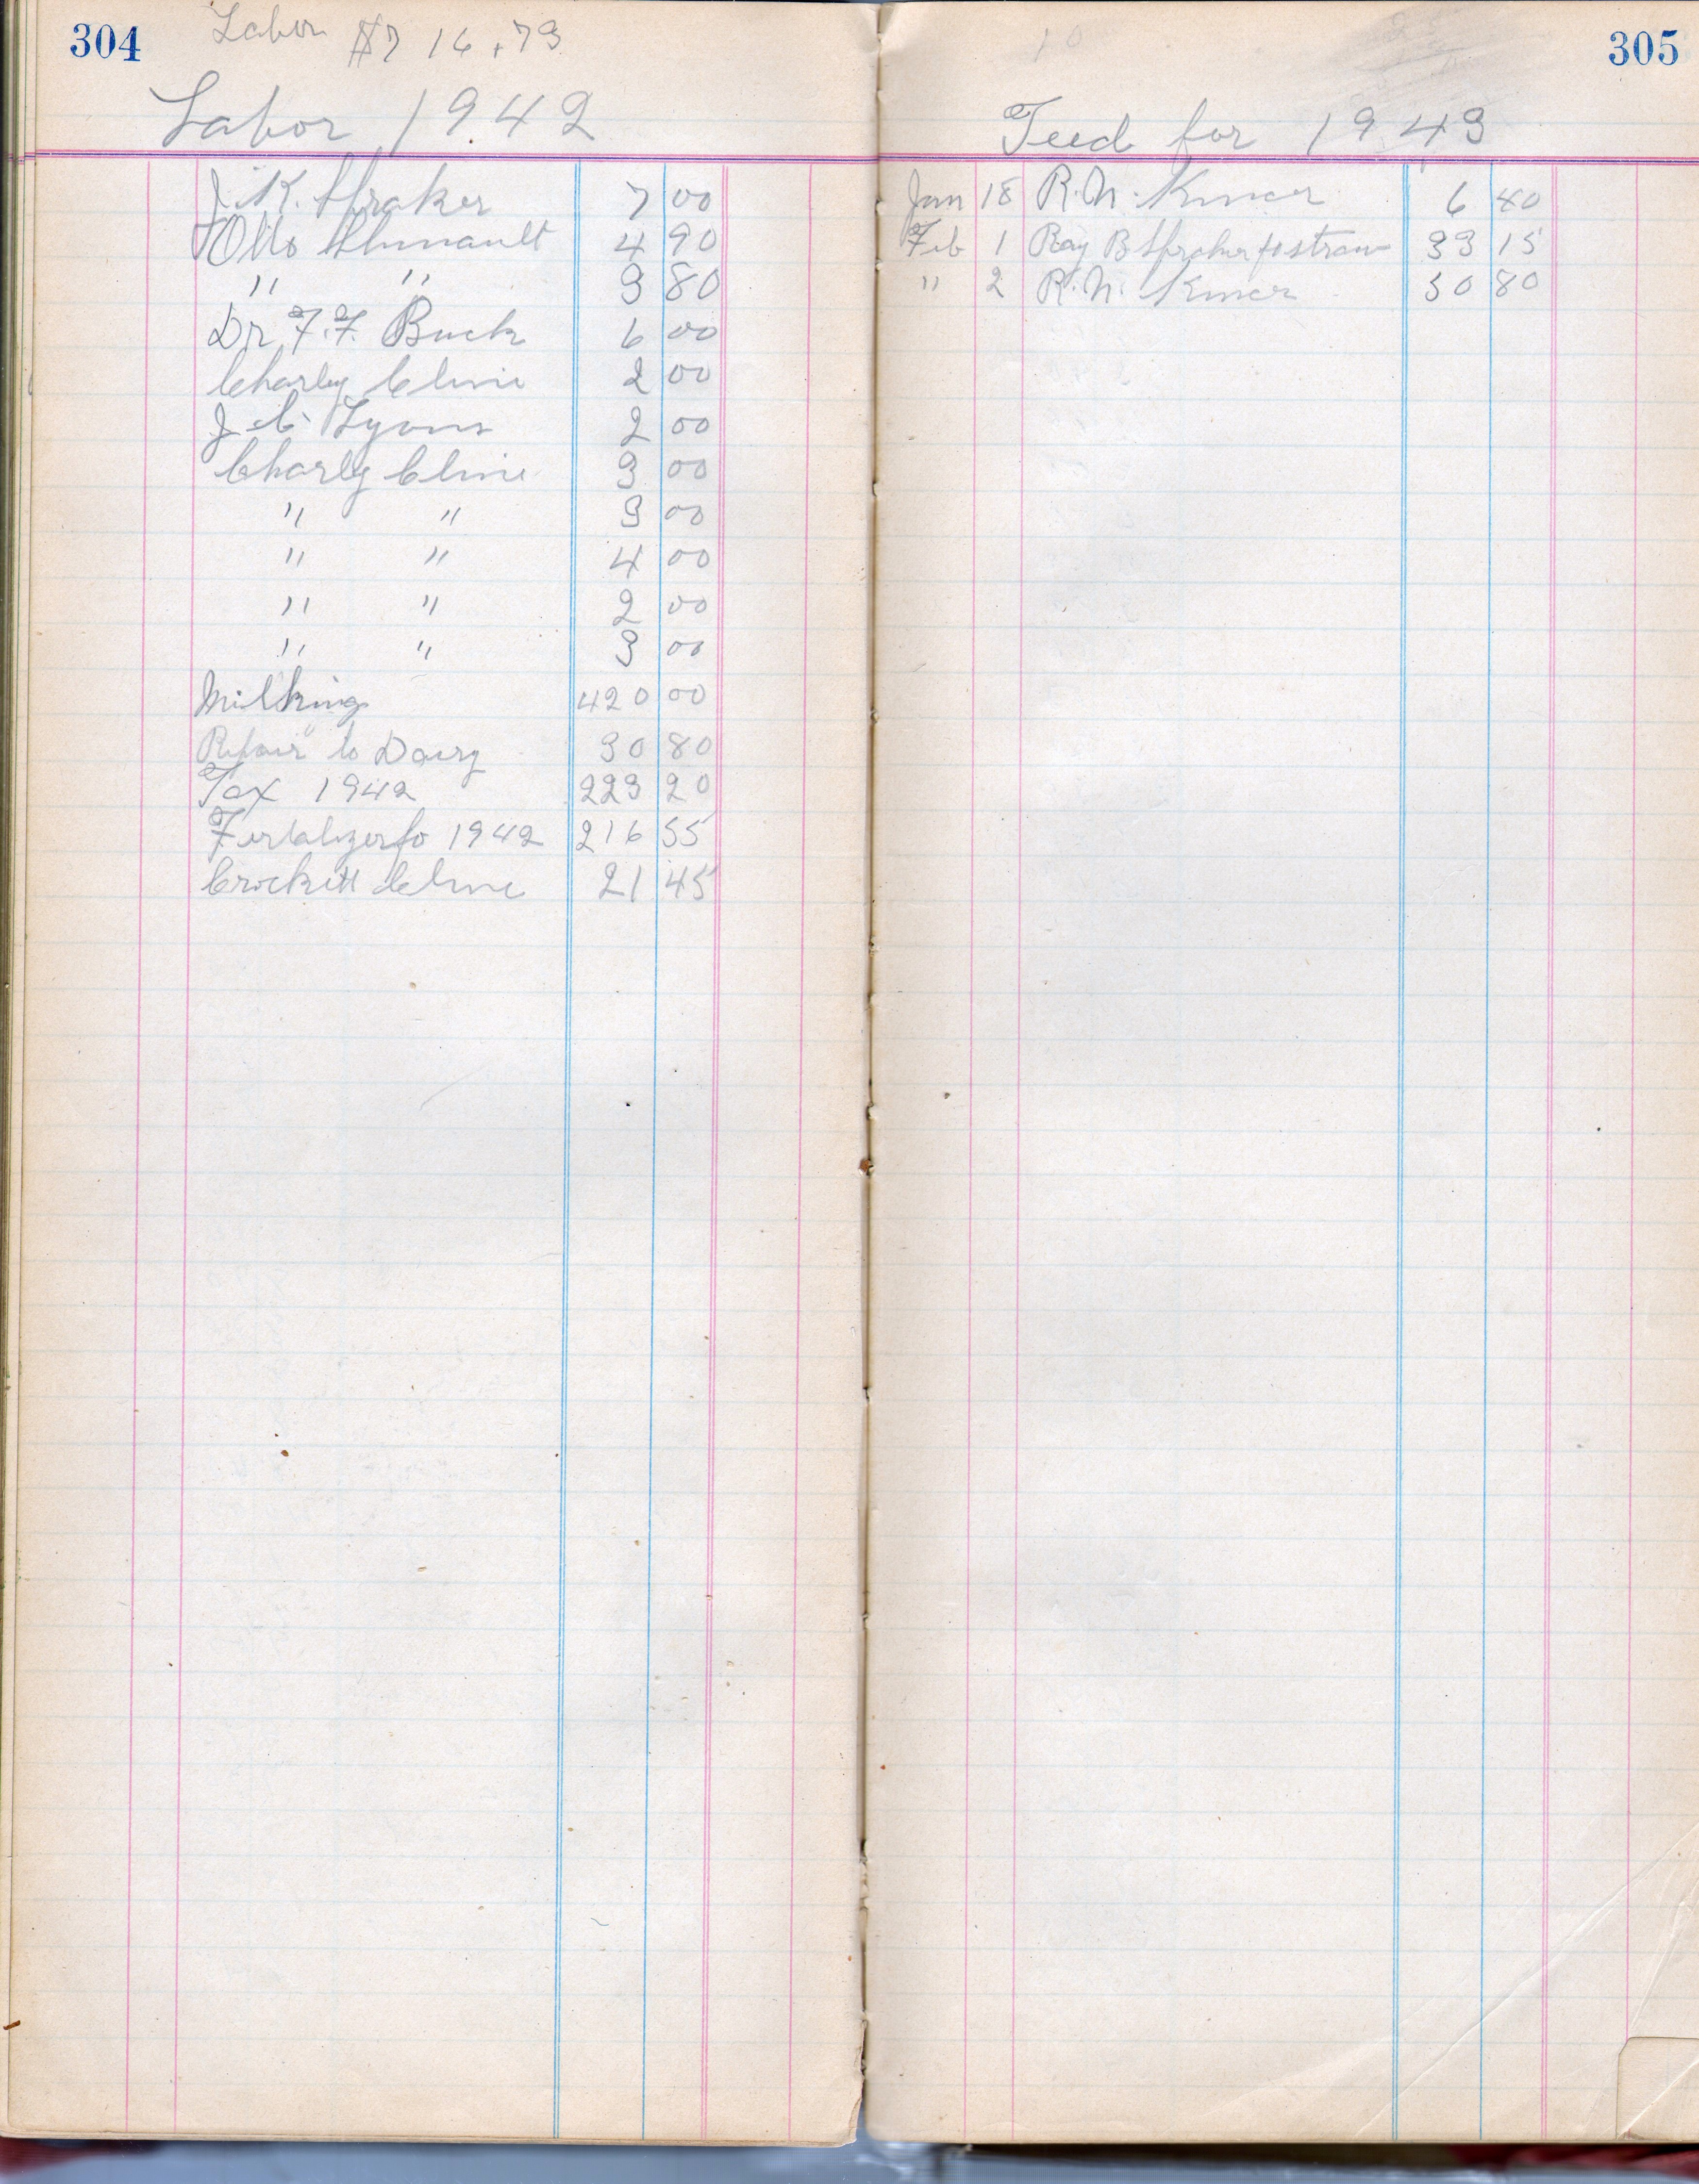 304
Labor $716.73
Labor 1942
J. K. Spraker 7 00
Otto 4 90
" " 3 80
Dr. F. F. Buck 6 00
Charley Cline 2 00
J. C. Lyons 2 00
Charley Cline 3 00
" " 3 00
" " 4 00
" " 2 00
" " 3 00
Milking 420 00
Repair to Dairy 30 80
Tax 1942 223 20
Fertalizer fo 1942 216 55
Crockett Cline 21 45
305
10
Feed for 1943
Jan 18 R. N. 6 40
Feb 1 Ray B Spraker straw 33 15
" 2 R. N. 30 80